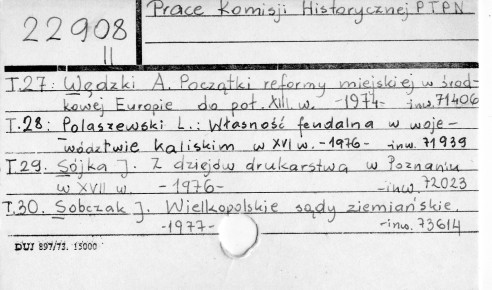 22908
II
Prace Komisji Historycznej PTPN
T.27: Wędzki A. Początki reformy miejskiej w środ-
kowej Europie do poł. XIII w. -1974- inw. 71406
T.28: Polaszewski L.: Własność feudalna w woje-
wództwie kaliskim w XVI w. -1976- inw. 71939
T.29. Sójka J. Z dziejów drukarstwa w Poznaniu
w XVII w. -1976- -inw. 72023
T.30. Sobczak J. Wielkopolskie sądy ziemiańskie
-1977- -inw. 73614
DUJ 897/73. 15000